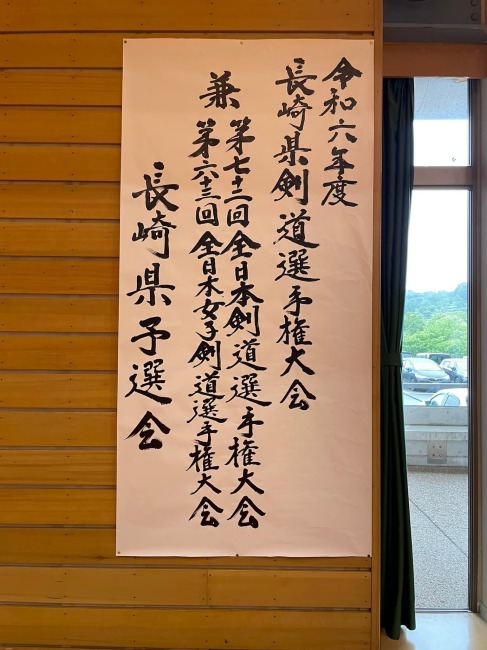 令和六年度
長崎県剣道選手権大会
兼
第七十二回全日本剣道選手権大会
第六十三回全日本女子剣道選手権大会
長崎県予選会